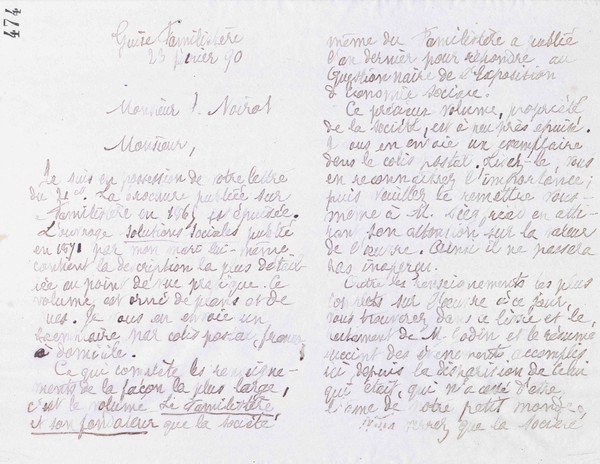 474
Guise Familistère
23 février 90
Monsieur Noirot
Monsieur,
Je suis en possession de votre lettre
du 21 ct. La brochure publiée sur
Familistère en 1865 est épuisée.
L'ouvrage solutions sociales publié
en 1871 par mon mari lui-même
contient la description la plus détail
lée au point de vue pratique. Ce
volume est orné de plans et de
vues. Je vous en envoie un
exemplaire par colis postal, franco
à domicile.
Ce qui complète les renseigne-
ments de la façon la plus large,
c'est le volume Le Familistère
et son fondateur que la société
même du Familistère a publié
l'an dernier pour répondre au
Questionnaire de l'Exposition
d'Economie sociale.
Ce précieux volume, propriété
de la société, est à peu près épuisé.
Je vous en envoie un exemplaire
dans le colis postal. Lisez-le, vous
en reconnaîtrez l'importance;
puis veuillez le remettre vous-
même à M. en atti-
rant son attention sur la valeur
de l'œuvre. Ainsi il ne passera
pas inaperçu.
Outre les renseignements les plus
complets sur l'œuvre à ce jour,
vous trouverez dans ce livre et le
testament de M. Godin et le résumé
succint des événements accomplis
ici depuis la disparition de celui
qui était, qui n'a cessé d'être
l'âme de notre petit monde.
Vous verrez que la société